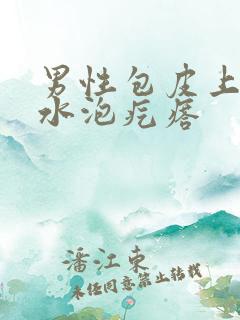 男性包皮上
水泡疙瘩
潘江东
未经同意禁止转载